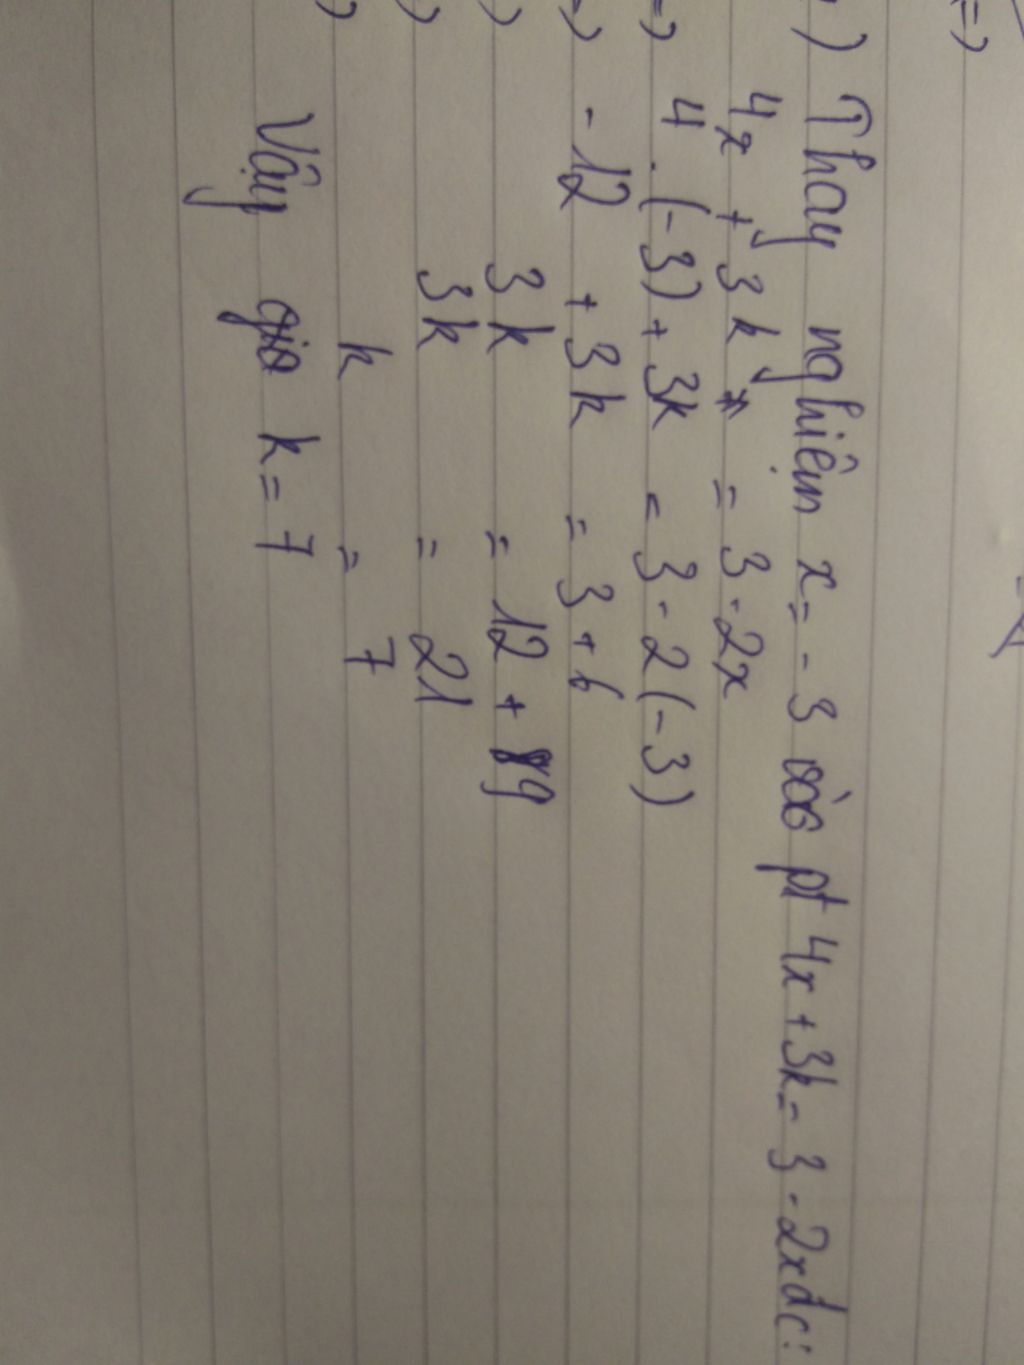 ) Thay nghiệm x = - 3 vào pt 4x + 3k = 3 - 2x đc:
4x + 3k = 3 - 2x
=> 4 . (-3) + 3k = 3 - 2 (-3)
=> - 12 + 3k = 3 + 6
3k = 12 + 9
3k = 21
k = 7
Vậy k = 7